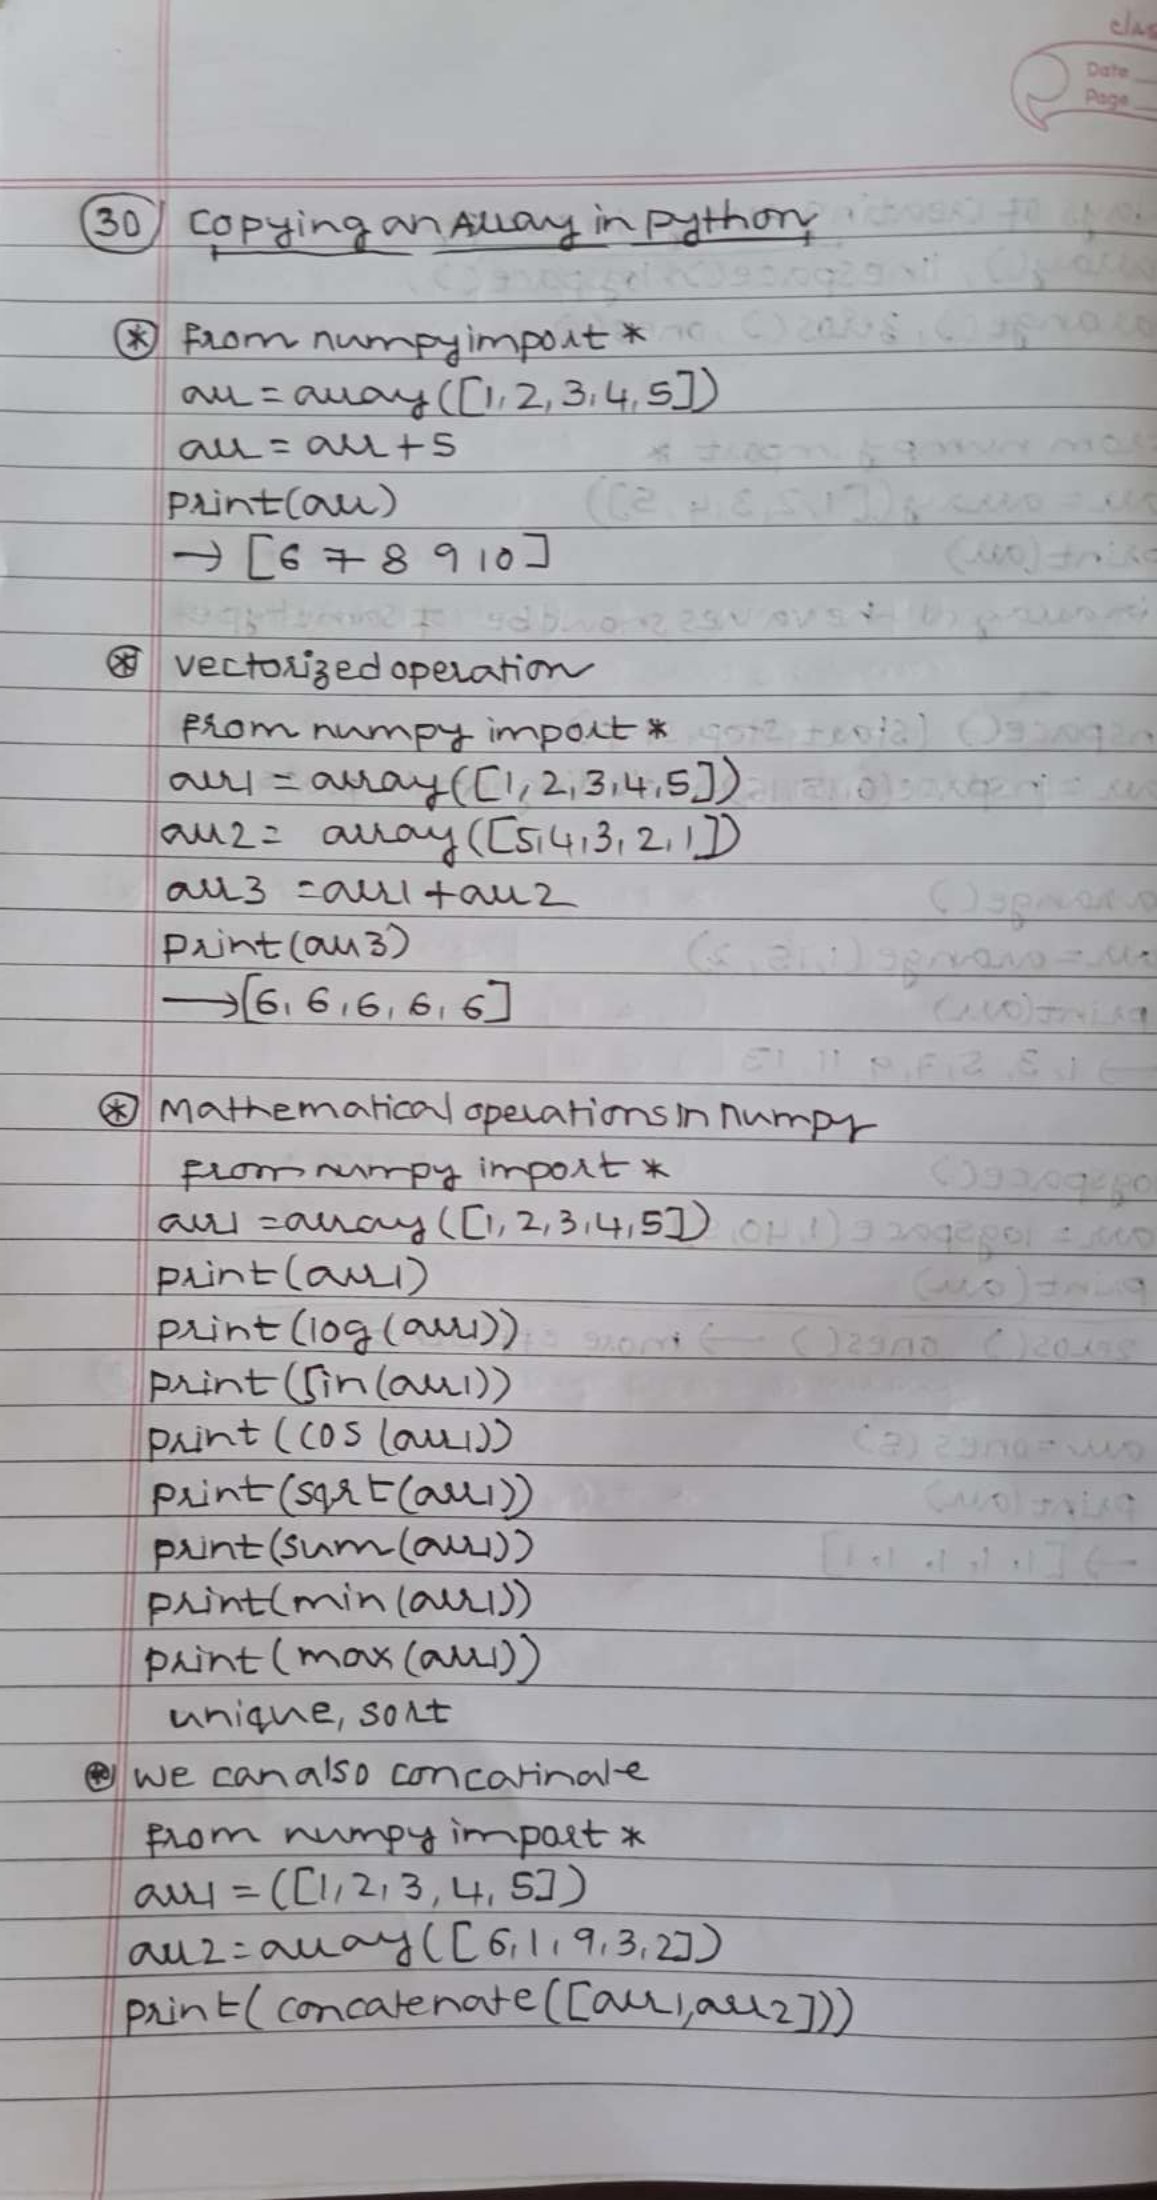 clas
Date
Page
30 Copying an Array in python
* from numpy import *
arr = array([1, 2, 3, 4, 5])
arr = arr + 5
print(arr)
→ [6 7 8 9 10]
* vectorized operation
from numpy import *
arr1 = array([1, 2, 3, 4, 5])
arr2 = array([5, 4, 3, 2, 1])
arr3 = arr1 + arr2
print(arr3)
→ [6, 6, 6, 6, 6]
* Mathematical operations in numpy
from numpy import *
arr1 = array([1, 2, 3, 4, 5])
print(arr1)
print(log(arr1))
print(sin(arr1))
print(cos(arr1))
print(sqrt(arr1))
print(sum(arr1))
print(min(arr1))
print(max(arr1))
unique, sort
* we can also concatinate
from numpy import *
arr1 = ([1, 2, 3, 4, 5])
arr2 = array([6, 1, 9, 3, 2])
print(concatenate([arr1, arr2]))